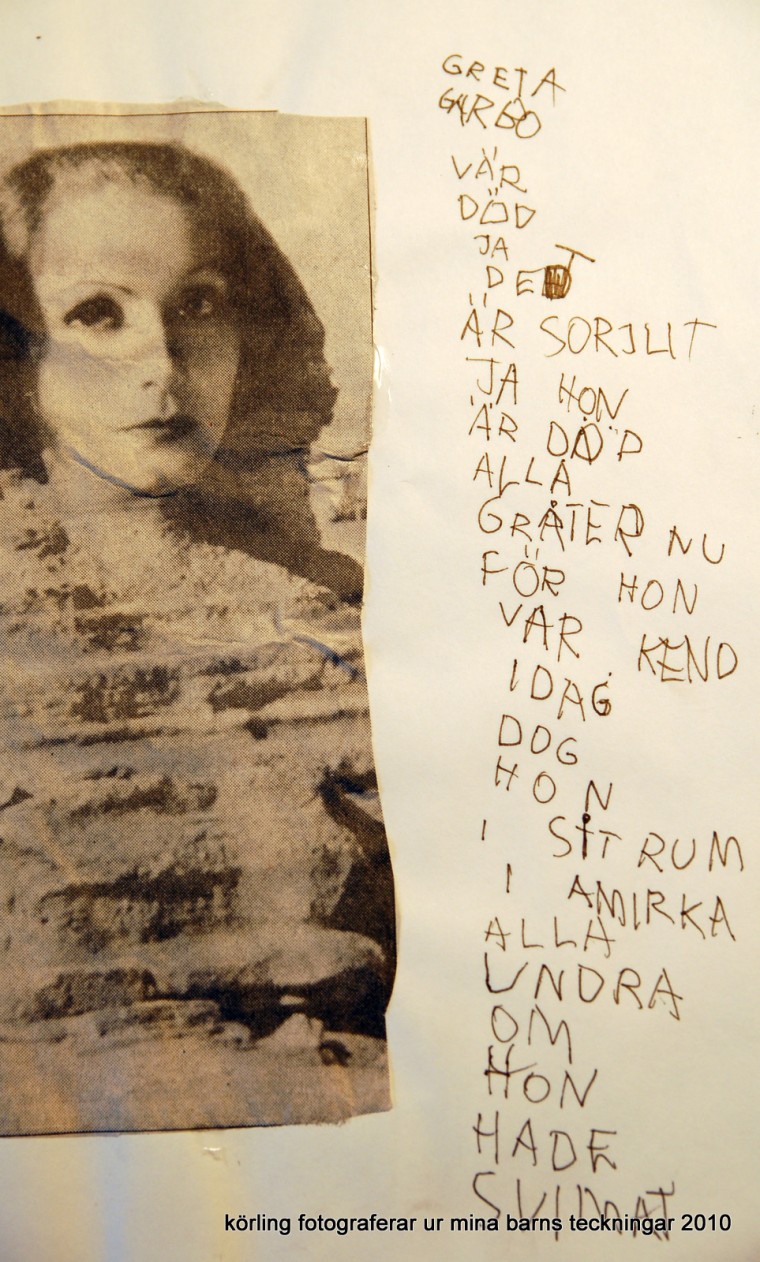 GRETA
GARBO
VÄR
DÖD
JA
DET
ÄR SORJLIT
JA HON
ÄR DÖD
ALLA
GRÅTER NU
FÖR HON
VAR KEND
IDAG
DOG
HON
I SIT RUM
I AMIRKA
ALLA
UNDRA
OM
HON
HADE
SVIMAT
körling fotograferar ur mina barns teckningar 2010